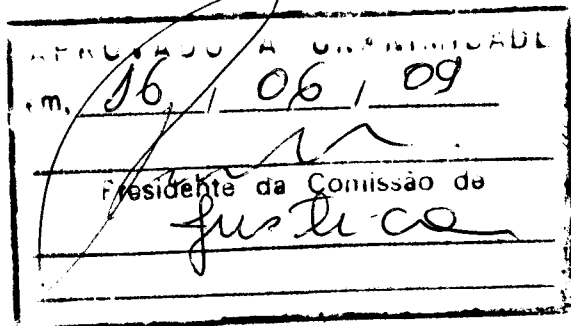 APROVADO A UNANIMIDADE
em, 16 / 06 / 09
Presidente da Comissão de
Justiça